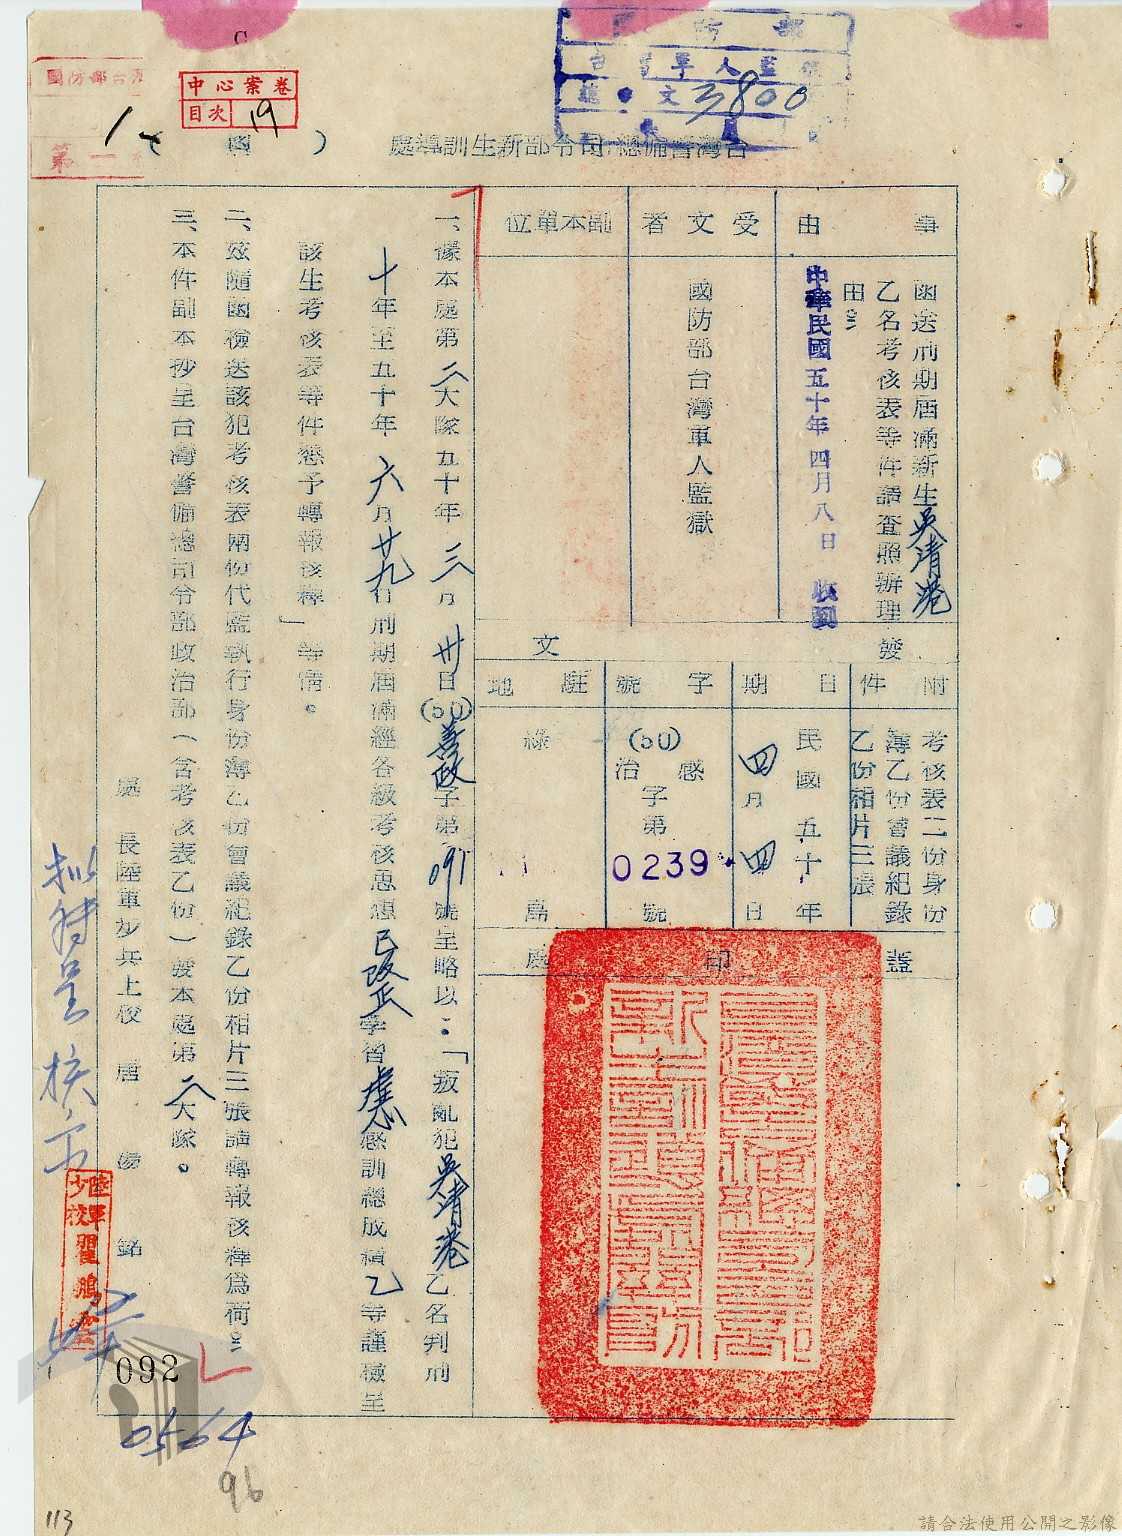 中心案卷
目次 19
台灣警備總司令部新生訓導處
（函）
事由
函送刑期屆滿新生吳靖港
乙名考核表等件請查照辦理
由
中華民國五十年四月八日 收到
受文者
國防部台灣軍人監獄
副本單位
發文
附件
考核表二份身份
簿乙份會議紀錄
乙份相片三張
日期
民國五十年
四月四日
字號
(50)
感治字第
0239
號
駐地
綠島
蓋印處
一、據本處第二大隊五十年三月卅日(50)善政字第091號呈略以：「叛亂犯吳靖港乙名判刑
十年至五十年六月廿九日刑期屆滿經各級考核思想已改正學習虛心感訓總成績乙等謹檢呈
該生考核表等件懇予轉報核釋」等情。
二、茲隨函檢送該犯考核表兩份代監執行身份簿乙份會議紀錄乙份相片三張請轉報核釋為荷
三、本件副本抄呈台灣警備總司令部政治部（含考核表乙份）發本處第二大隊。
處長陸軍步兵上校唐湯銘
擬轉呈核示
092
0564
96
113
請合法使用公開之影像